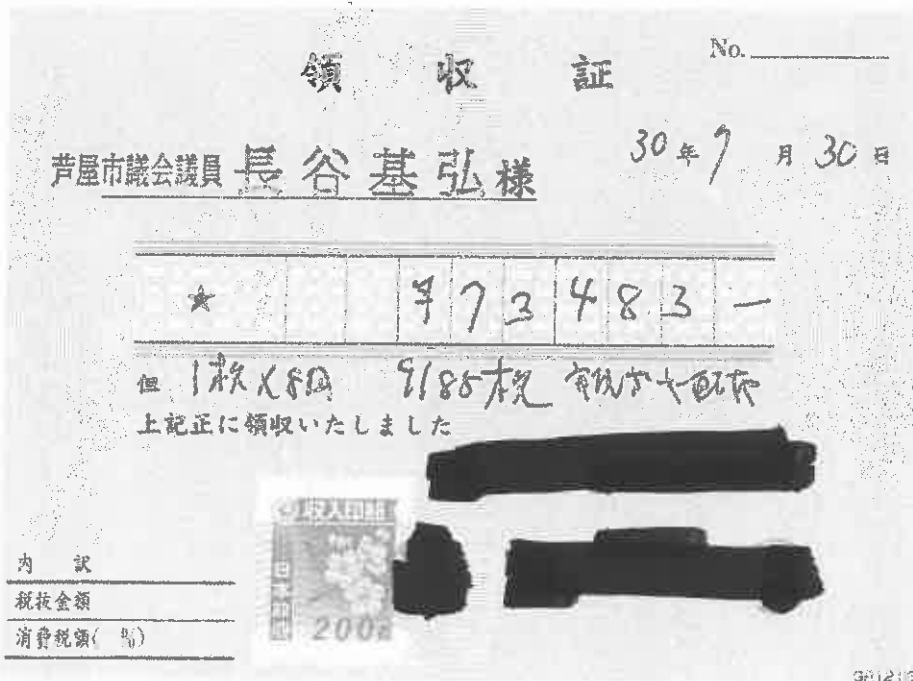 No.
領収証
芦屋市議会議員 長谷基弘様
30年7月30日
★ ¥73483―
但 1枚×8円 9185枚
上記正に領収いたしました
収入印紙
日本政府
200円
内 訳
税抜金額
消費税額( %)